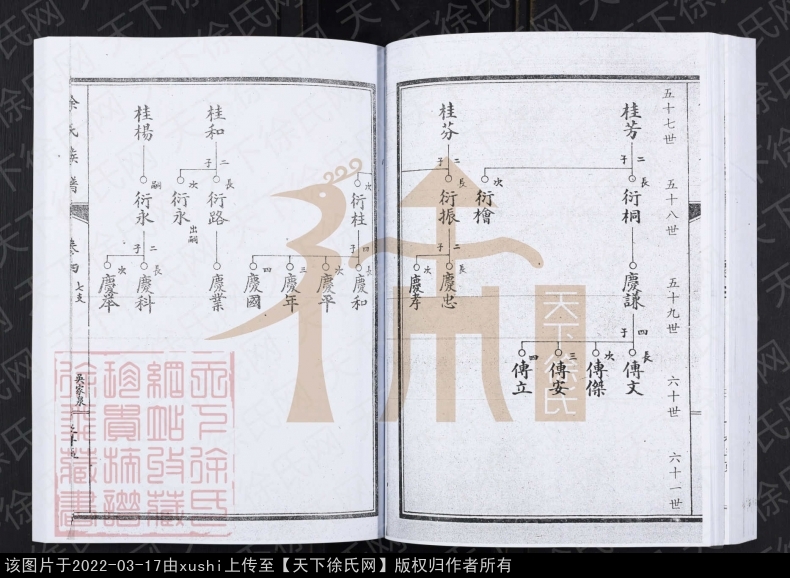 五十七世
五十八世
五十九世
六十世
六十一世
桂芳
二子
長
衍桐
慶謙
四子
長
傳文
次
傳傑
三
傳安
四
傳立
次
衍檜
桂芬
二子
長
衍振
二子
長
慶忠
次
慶孝
次
衍柱
四子
長
慶和
次
慶平
三
慶年
四
慶國
桂和
二子
長
衍路
慶業
次
衍永
出嗣
桂楊
嗣
衍永
二子
長
慶科
次
慶舉
徐氏族譜
卷四
七支
吳家泉
天下徐氏
天下徐氏网
天下徐氏
網站收藏
珍貴族譜
徐羊藏書
该图片于2022-03-17由xushi上传至【天下徐氏网】版权归作者所有